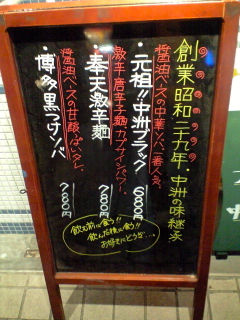 創業昭和二十九年、中洲の味継承
醤油ベースの中華ソバ、一番人気
・元祖!!中洲ブラック
680円
激辛唐辛子麺 カプサイシンパワー
・奉天激辛麺
780円
醤油ベースの甘酸っぱいタレ
・博多黒つけソバ
780円
飲む前に食う!!
飲んだ後に食う!!
お好きにどうぞ…